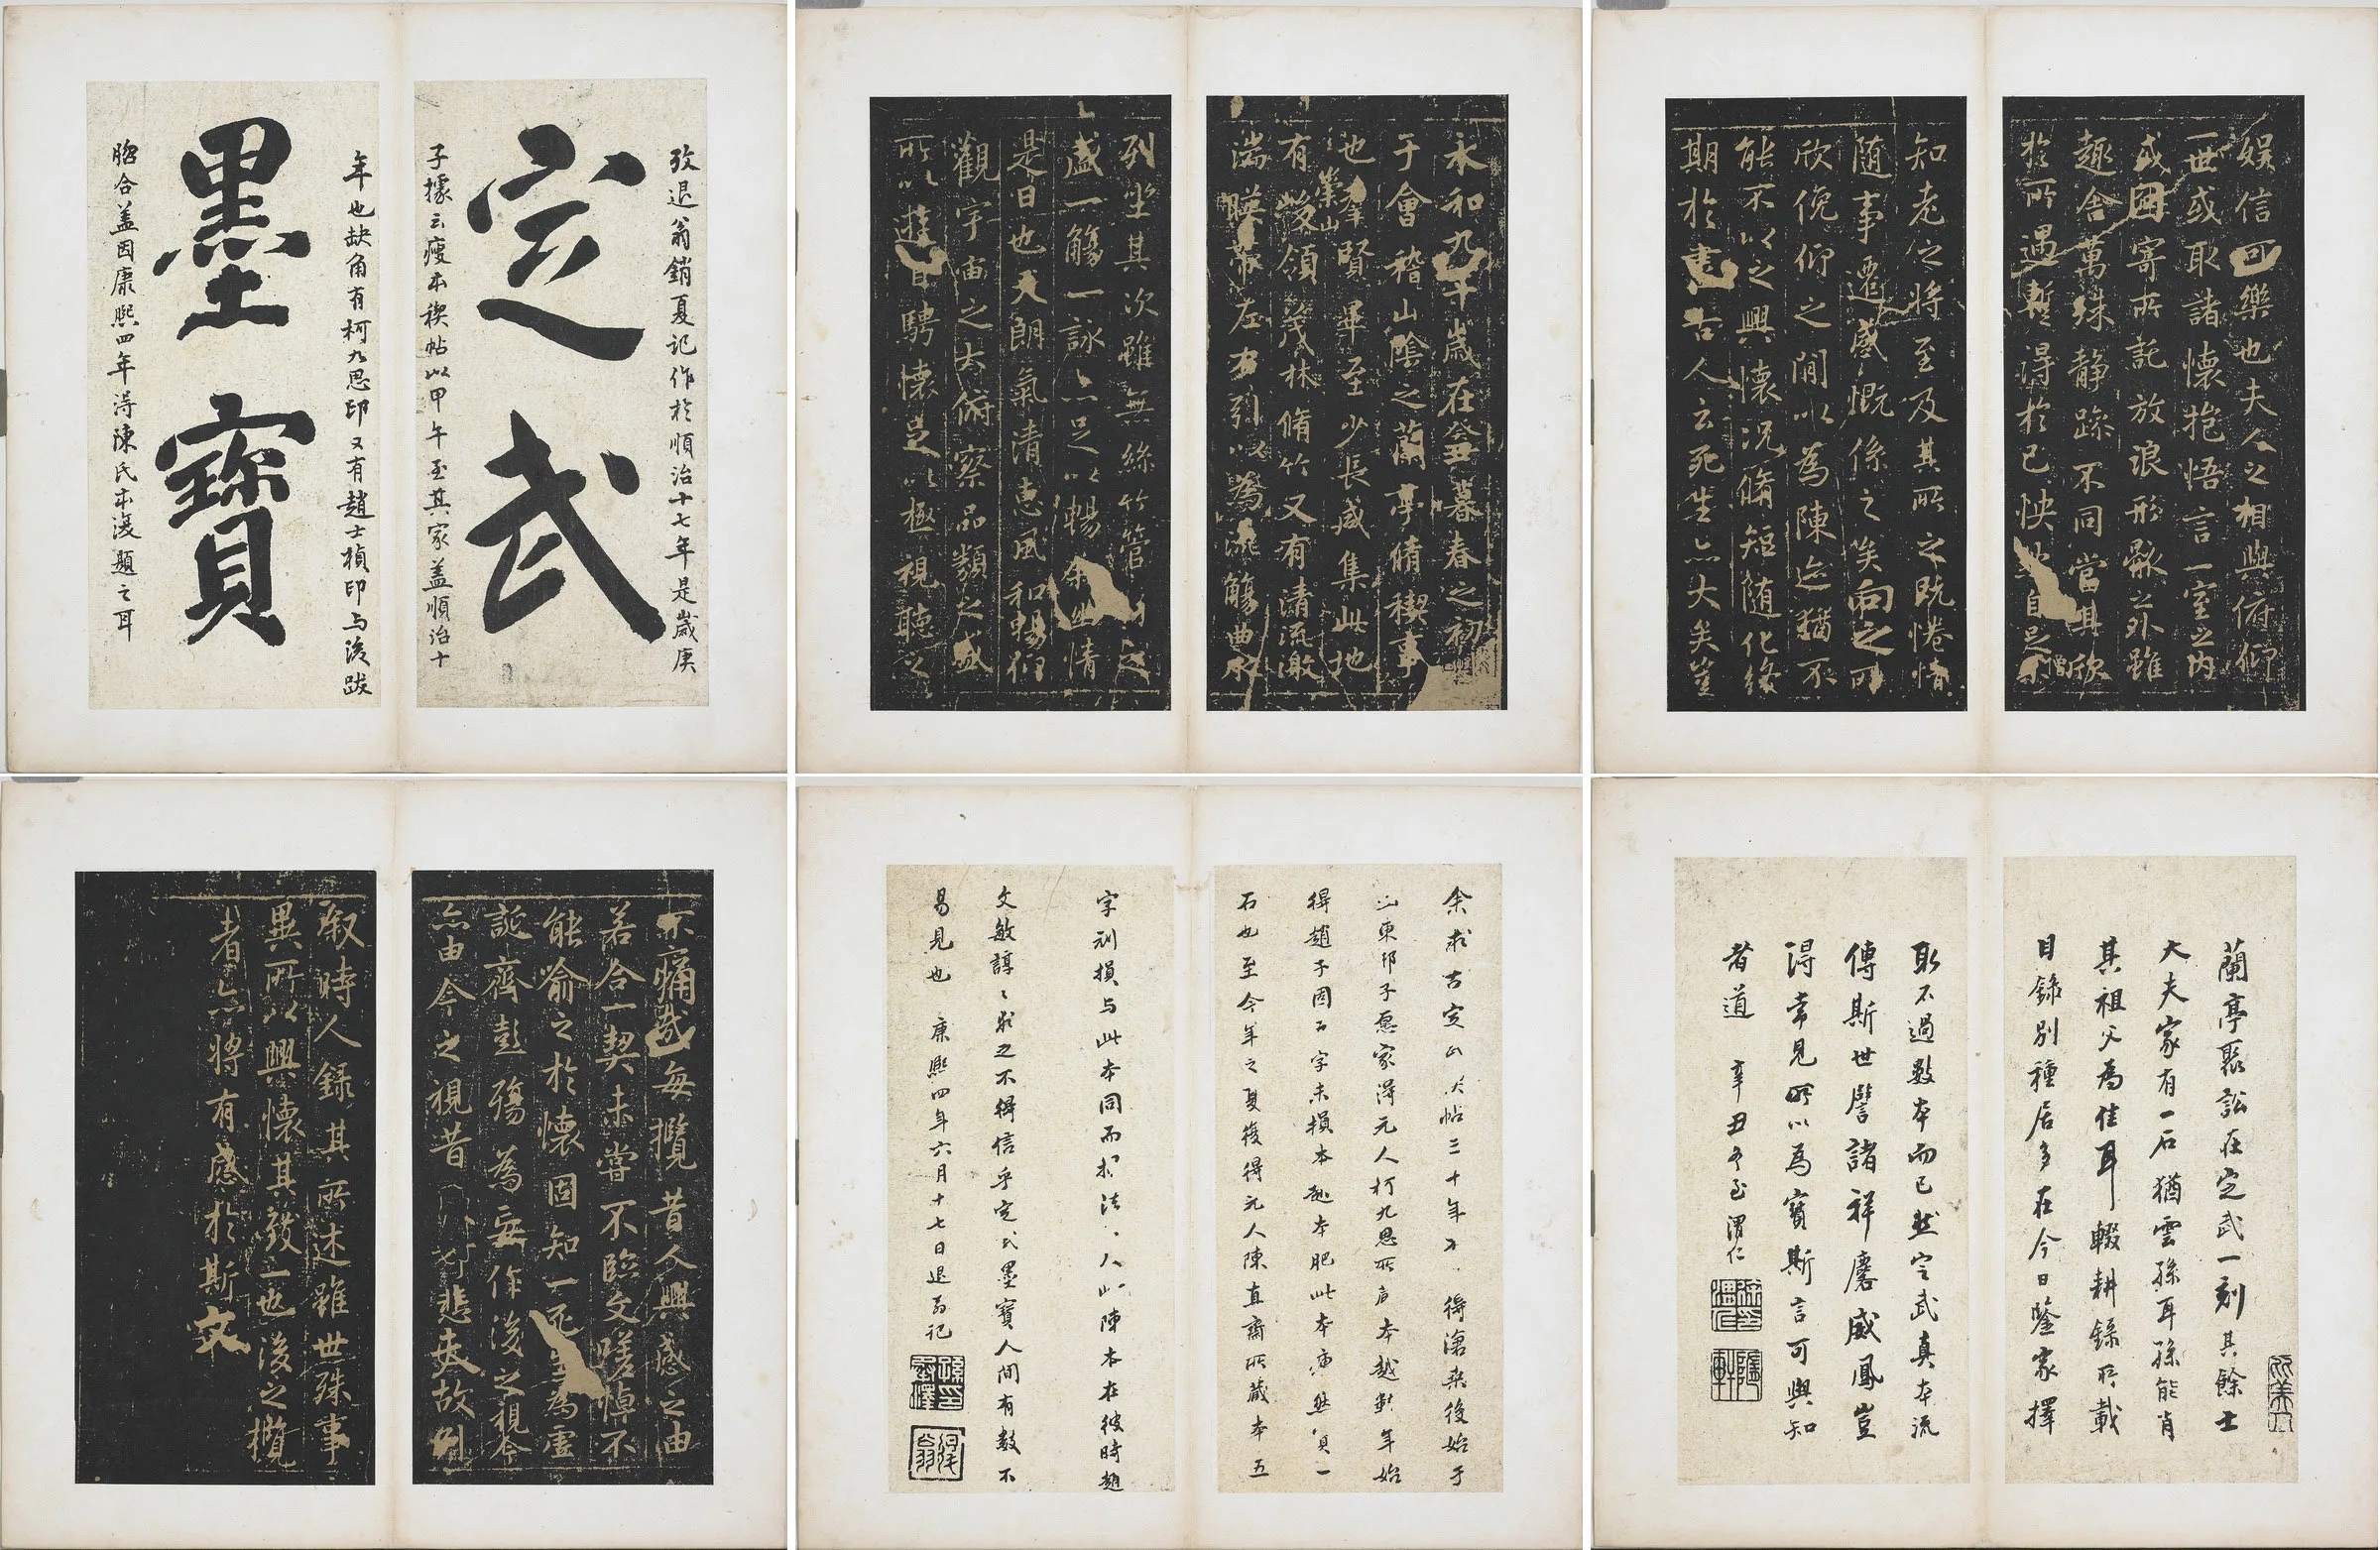 攷退翁銷夏記作於順治十七年是歲庚
定武
子據云瘦本禊帖以甲午至其家蓋順治十
年也缺角有柯九思印又有趙士楨印与後跋
墨寶
脗合蓋因康熙四年淂陳氏本復題之耳
永和九年歲在癸丑暮春之初
于會稽山陰之蘭亭脩禊事
也羣賢畢至少長咸集此地
崇山
有峻領茂林脩竹又有清流激
湍暎帶左右引以為流觴曲水
列坐其次雖無絲竹管
盛一觴一詠亦足以暢叙幽情
是日也天朗氣清惠風和暢仰
觀宇宙之大俯察品類之盛
所以遊目騁懷足以極視聽之
娛信可樂也夫人之相與俯仰
一世或取諸懷抱悟言一室之內
或因寄所託放浪形骸之外雖
趣舍萬殊静躁不同當其欣
於所遇暫得於己快然自足不
知老之將至及其所之既惓情
随事遷感慨係之矣向之所
欣俛仰之閒以為陳迹猶不
能不以之興懷況脩短随化終
期於盡古人云死生亦大矣豈
不痛哉每攬昔人興感之由
若合一契未嘗不臨文嗟悼不
能喻之於懷固知一死生為虛
誕齊彭殤為妄作後之視今
亦由今之視昔 悲夫故列
叙時人錄其所述雖世殊事
異所以興懷其致一也後之攬
者亦將有感於斯文
余求古定武帖三十年不得滄桒後始于
山東邢子愿家得元人柯九思所存本越數年始
得趙子固五字未損本趙本肥此本瘦然實一
石也至今年之夏復得元人陳直齋所藏本五
字刓損与此本同而 法 人 陳本在彼時趙
文敏諄〻求之不得信乎定武墨寶人間有數不
易見也 康熙四年六月十七日退翁記
蘭亭聚訟在定武一刻其餘士
大夫家有一石猶雲孫耳孫能肖
其祖父為佳耳輟耕錄所載
目錄別種居多在今日鑒家擇
取不過數本而已然定武真本流
傳斯世譬諸祥麐威鳳豈
淂常見所以為寶斯言可與知
者道 辛丑冬至渭仁